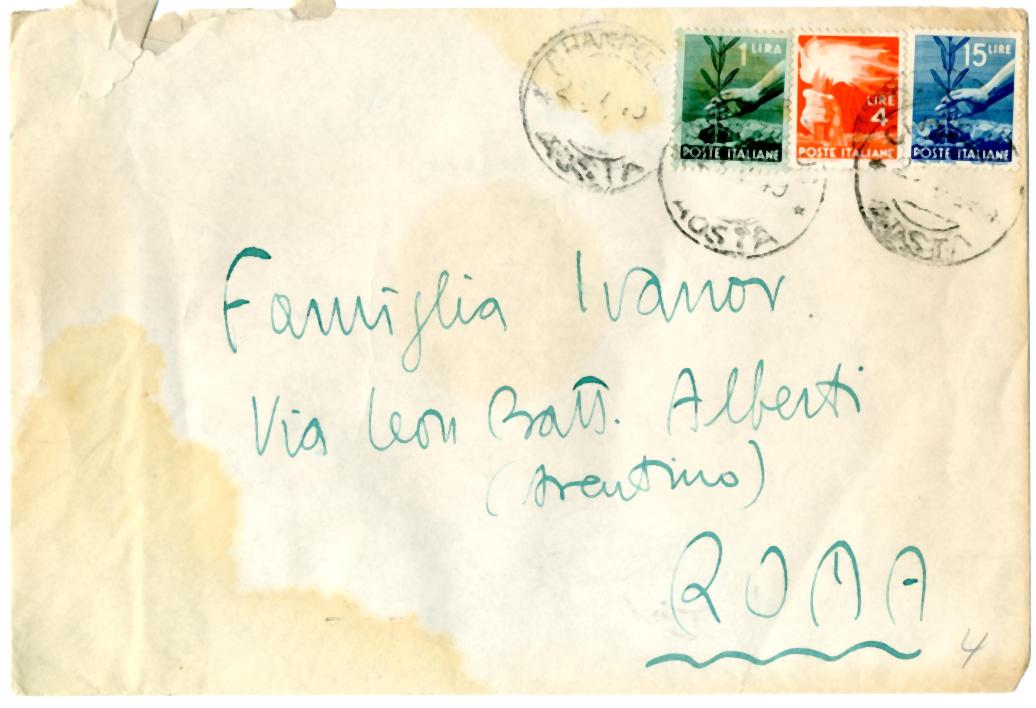 1 LIRA
POSTE ITALIANE
LIRE
4
POSTE ITALIANE
15 LIRE
POSTE ITALIANE
AOSTA
AOSTA
AOSTA
Famiglia Ivanov
Via Leon Batt. Alberti
(Aventino)
ROMA
4